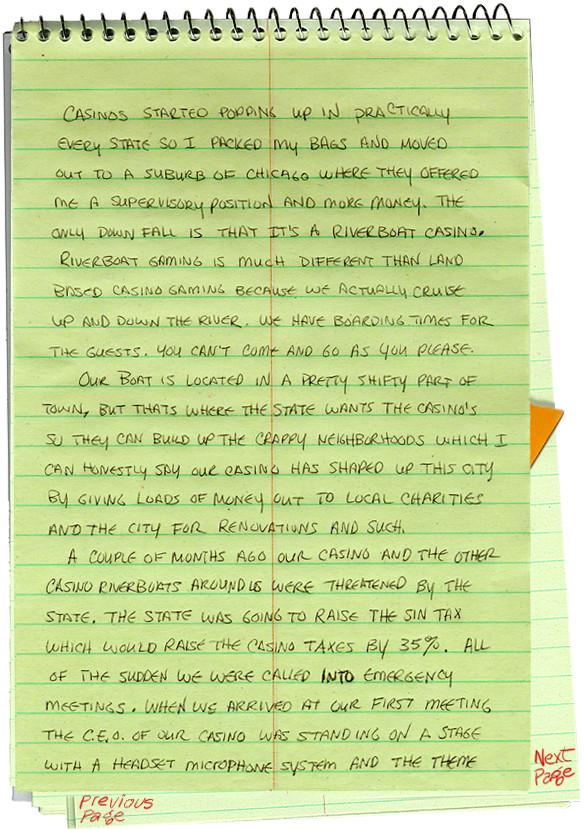 CASINOS STARTED POPPING UP IN PRACTICALLY
EVERY STATE SO I PACKED MY BAGS AND MOVED
OUT TO A SUBURB OF CHICAGO WHERE THEY OFFERED
ME A SUPERVISORY POSITION AND MORE MONEY. THE
ONLY DOWN FALL IS THAT IT'S A RIVERBOAT CASINO.
RIVERBOAT GAMING IS MUCH DIFFERENT THAN LAND
BASED CASINO GAMING BECAUSE WE ACTUALLY CRUISE
UP AND DOWN THE RIVER. WE HAVE BOARDING TIMES FOR
THE GUESTS. YOU CAN'T COME AND GO AS YOU PLEASE.
OUR BOAT IS LOCATED IN A PRETTY SHIFTY PART OF
TOWN, BUT THATS WHERE THE STATE WANTS THE CASINO'S
SO THEY CAN BUILD UP THE CRAPPY NEIGHBORHOODS WHICH I
CAN HONESTLY SAY OUR CASINO HAS SHAPED UP THIS CITY
BY GIVING LOADS OF MONEY OUT TO LOCAL CHARITIES
AND THE CITY FOR RENOVATIONS AND SUCH.
A COUPLE OF MONTHS AGO OUR CASINO AND THE OTHER
CASINO RIVERBOATS AROUND US WERE THREATENED BY THE
STATE. THE STATE WAS GOING TO RAISE THE SIN TAX
WHICH WOULD RAISE THE CASINO TAXES BY 35%. ALL
OF THE SUDDEN WE WERE CALLED INTO EMERGENCY
MEETINGS. WHEN WE ARRIVED AT OUR FIRST MEETING
THE C.E.O. OF OUR CASINO WAS STANDING ON A STAGE
WITH A HEADSET MICROPHONE SYSTEM AND THE THEME
Next
Page
Previous
Page